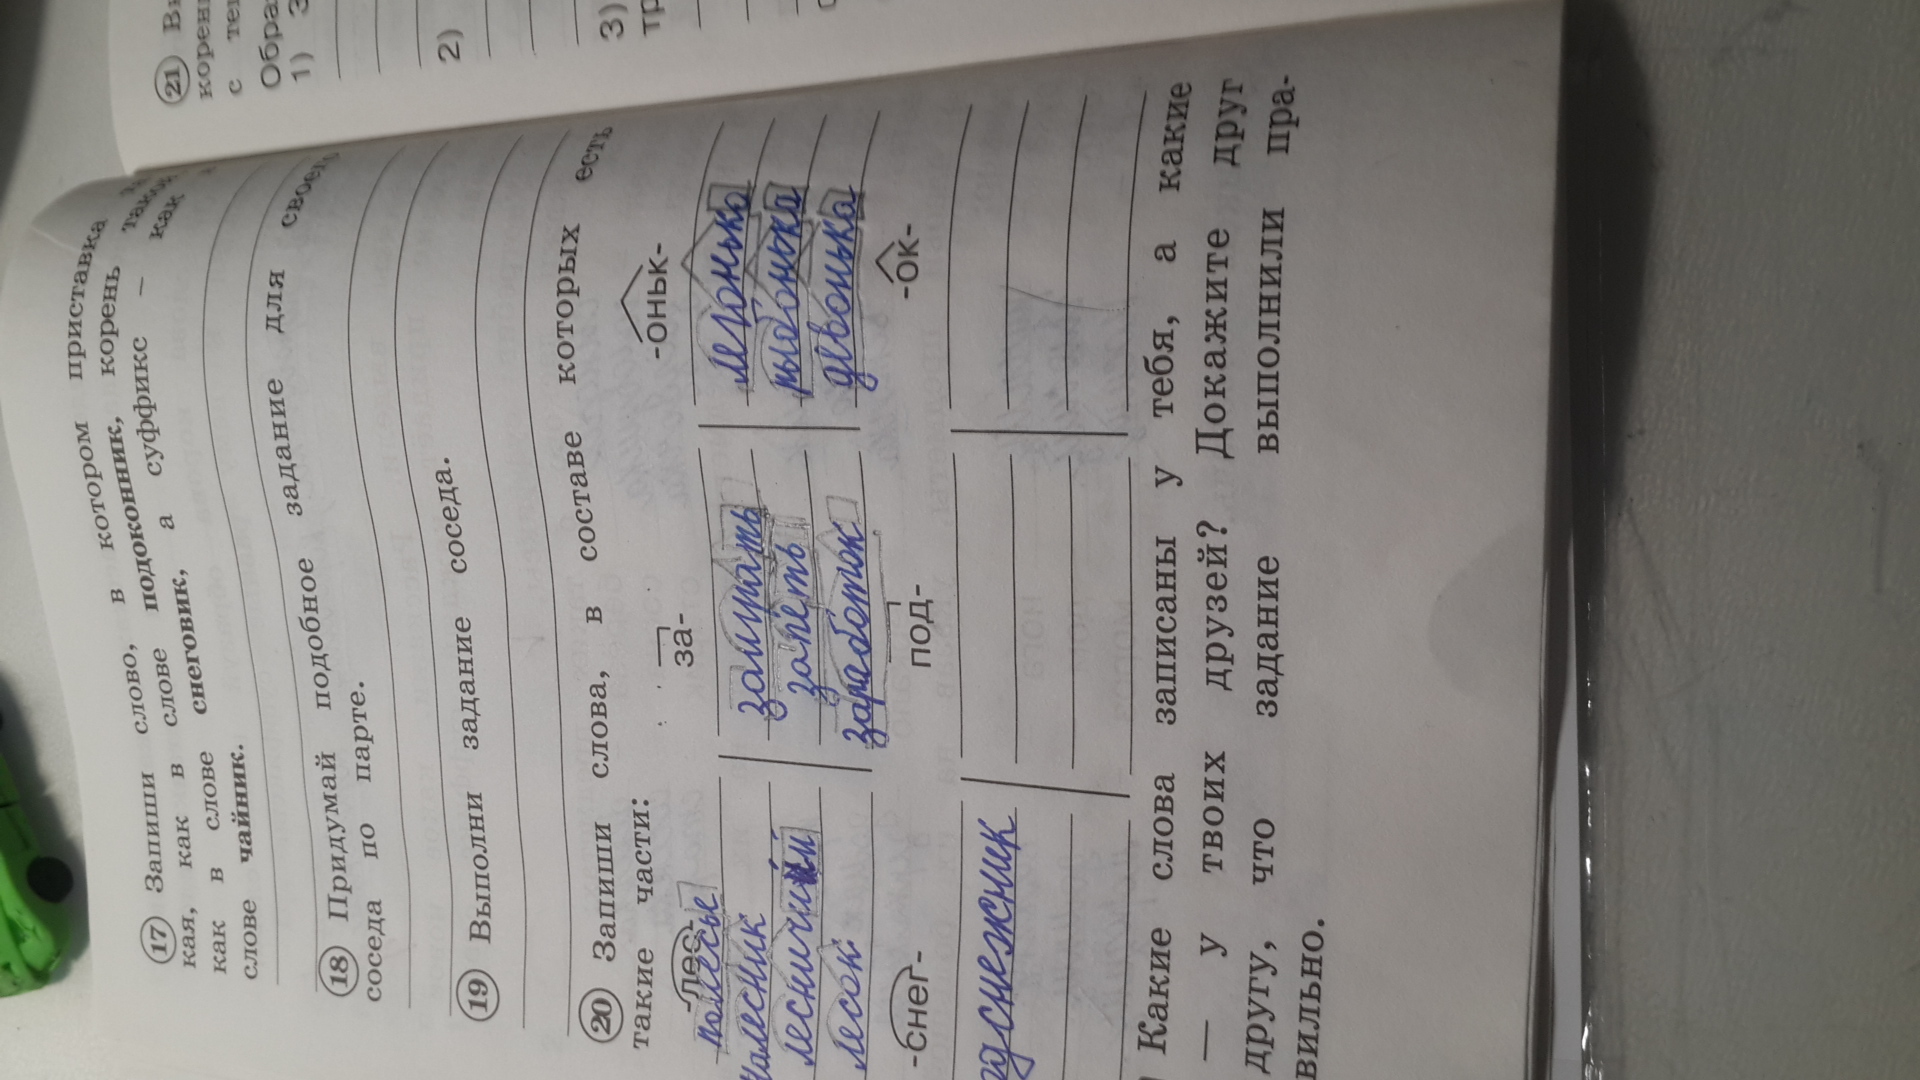 17 Запиши слово, в котором приставка
кая, как в слове подоконник, корень
как в слове снеговик, а суффикс — как
слове чайник.
18 Придумай подобное задание для
соседа по парте.
19 Выполни задание соседа.
20 Запиши слова, в составе которых есть
такие части:
-лес- за- -оньк-
полесье
лесничий
лесок
запеть
заработок
девонька
-снег- под- -ок-
Какие слова записаны у тебя, а какие
— у твоих друзей? Докажите друг
другу, что задание выполнили пра-
вильно.
21
1)
2)
3)